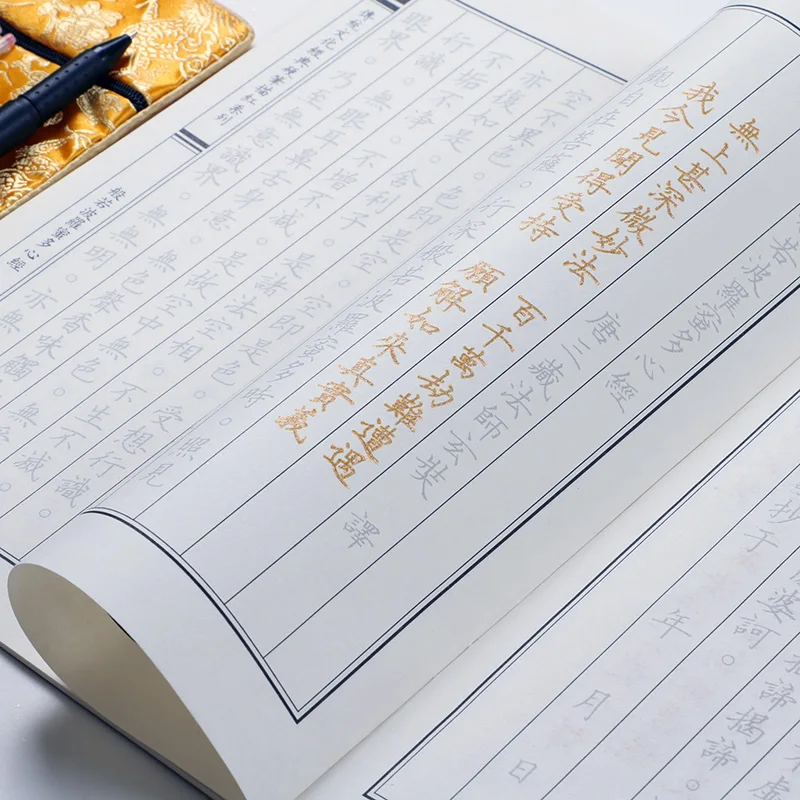 若波羅蜜多心經
唐三藏法師玄奘 譯
無上甚深微妙法
百千萬劫難遭遇
我今見聞得受持
願解如來真實義
觀自在菩薩。行深般若波羅蜜多時。照見
空不異色。色即是空。空即是色。受想行識
亦復如是。舍利子。是諸法空相。不生不滅。
不垢不淨。不增不減。是故空中
行識。無眼耳鼻舌身意。無色聲香味觸
眼界。乃至無意識界。無無明。亦無
傳統文化經典硬筆描紅系列
般若波羅蜜多心經
不虛
揭諦。
婆訶。
抄于 年 月 日